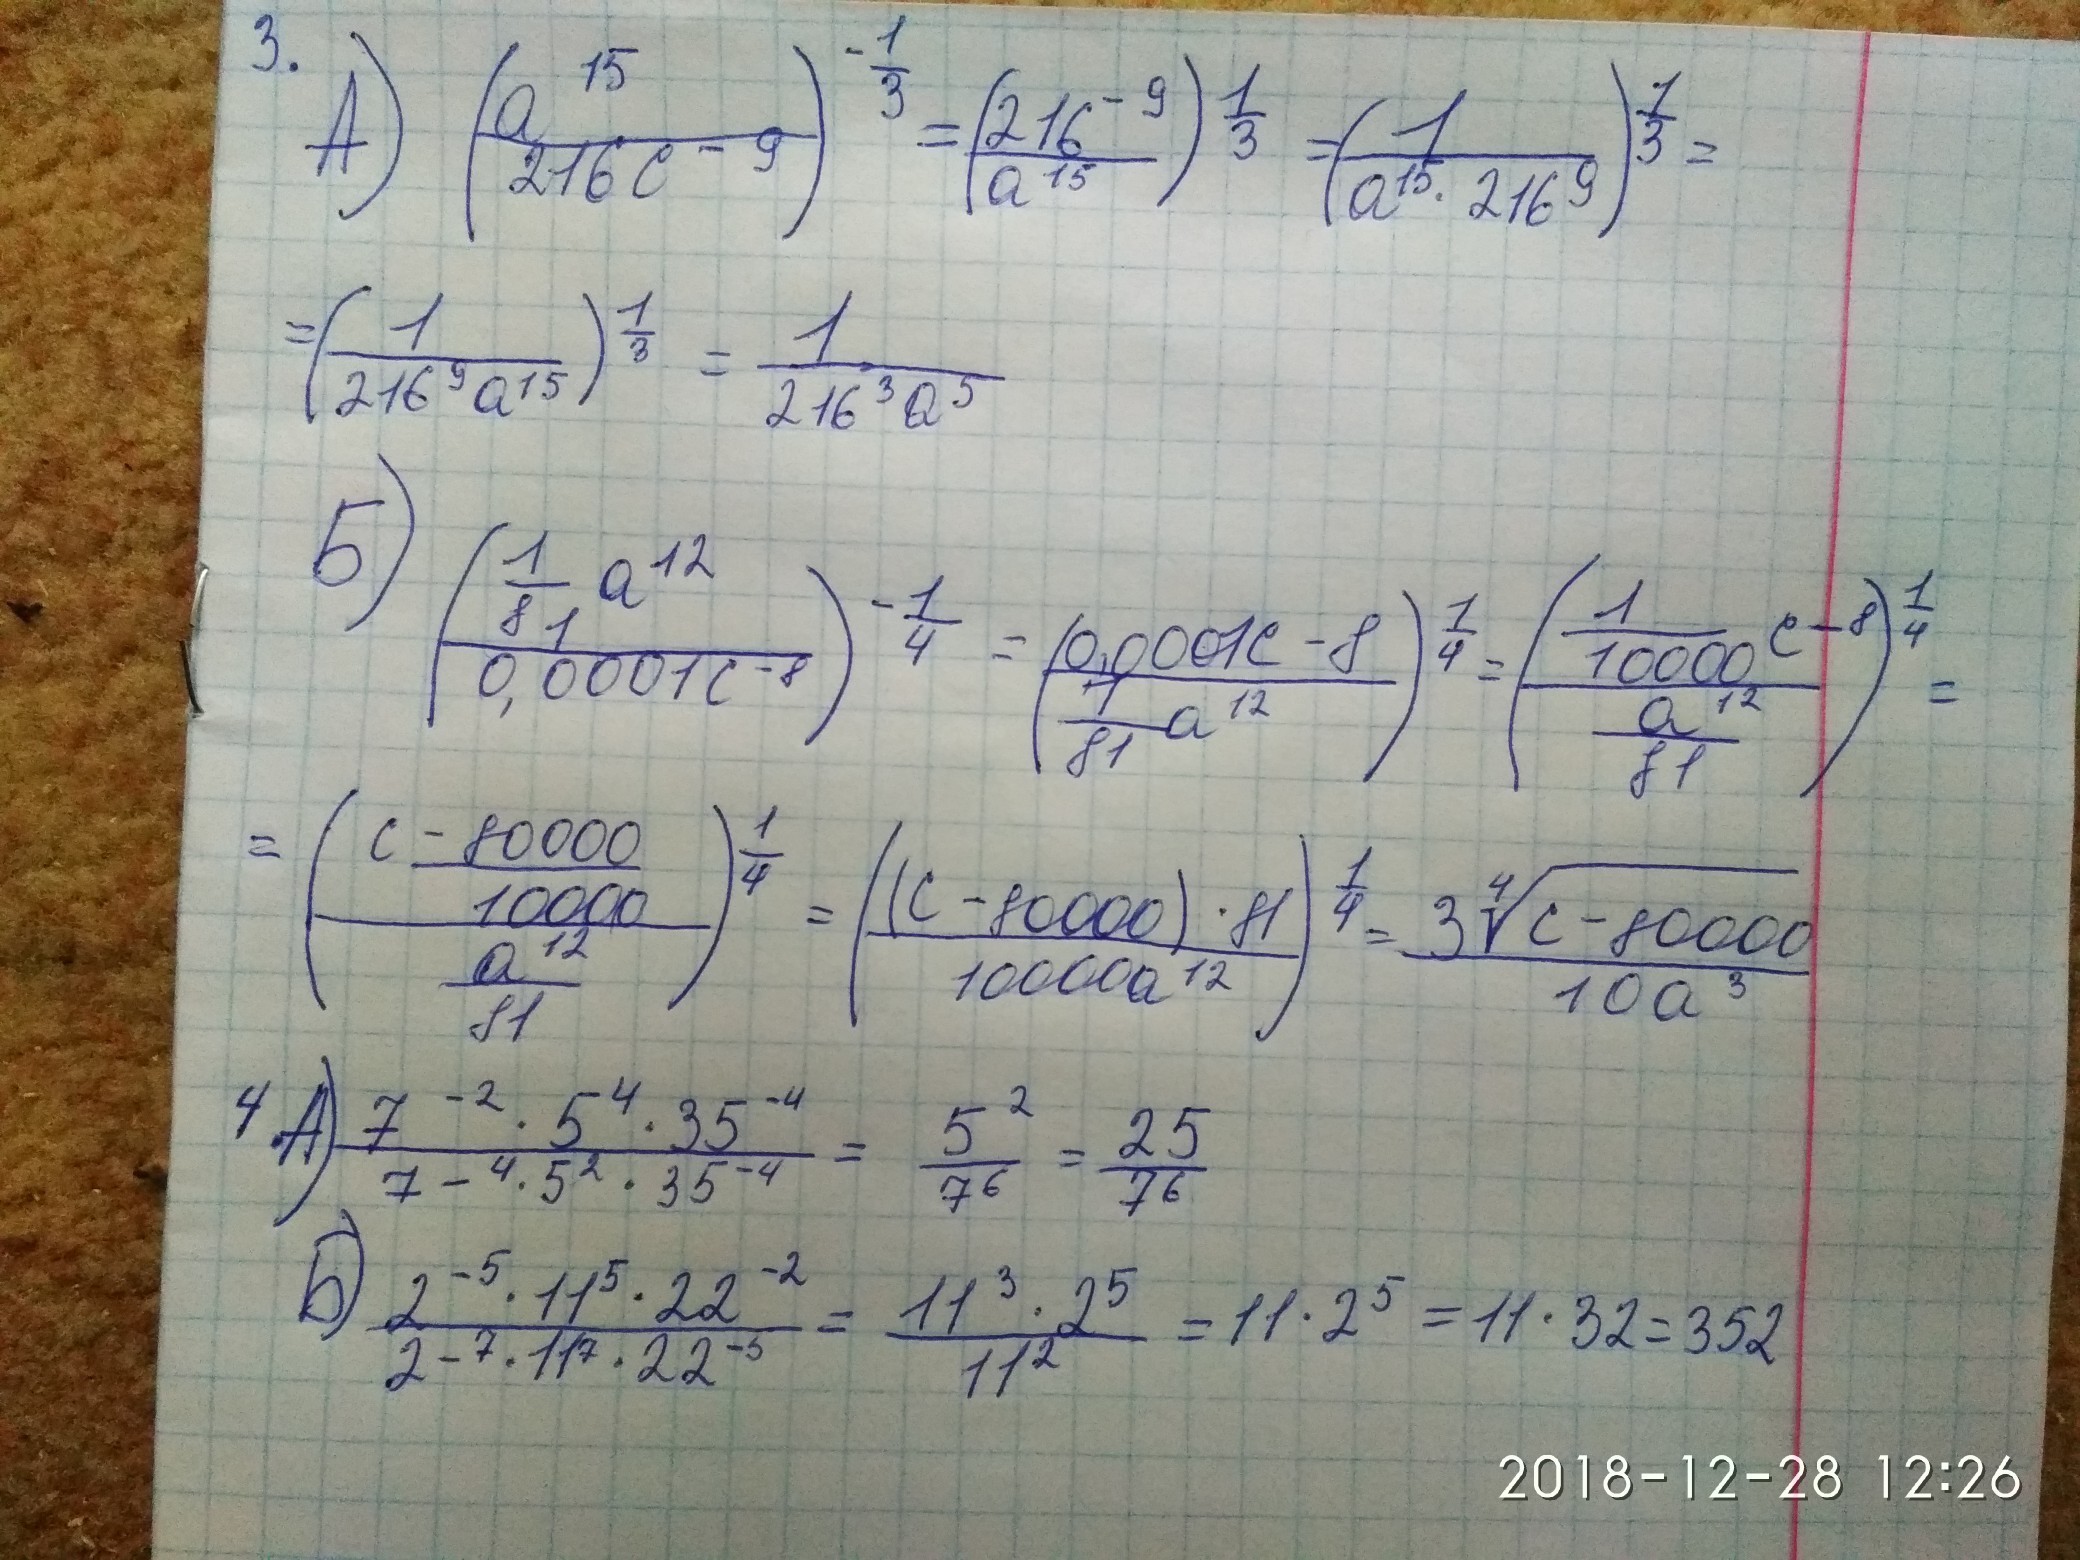 3. А) (a^15 / 216c^-9)^(-1/3) = (216^-9 / a^15)^(1/3) = (1 / a^15 · 216^9)^(1/3) =
= (1 / 216^9 a^15)^(1/3) = 1 / 216^3 a^5
Б) (1/81 a^12 / 0,0001c^-8)^(-1/4) = (0,0001c-8 / 1/81 a^12)^(1/4) = (1/10000 c-8 / a^12/81)^(1/4) =
= (c-80000/10000 / a^12/81)^(1/4) = ((c-80000)·81 / 10000a^12)^(1/4) = 3 ∜(c-80000) / 10a^3
4. А) 7^-2 · 5^4 · 35^-4 / 7^-4 · 5^2 · 35^-4 = 5^2 / 7^6 = 25 / 7^6
Б) 2^-5 · 11^5 · 22^-2 / 2^-7 · 11^7 · 22^-5 = 11^3 · 2^5 / 11^2 = 11 · 2^5 = 11 · 32 = 352
2018-12-28 12:26